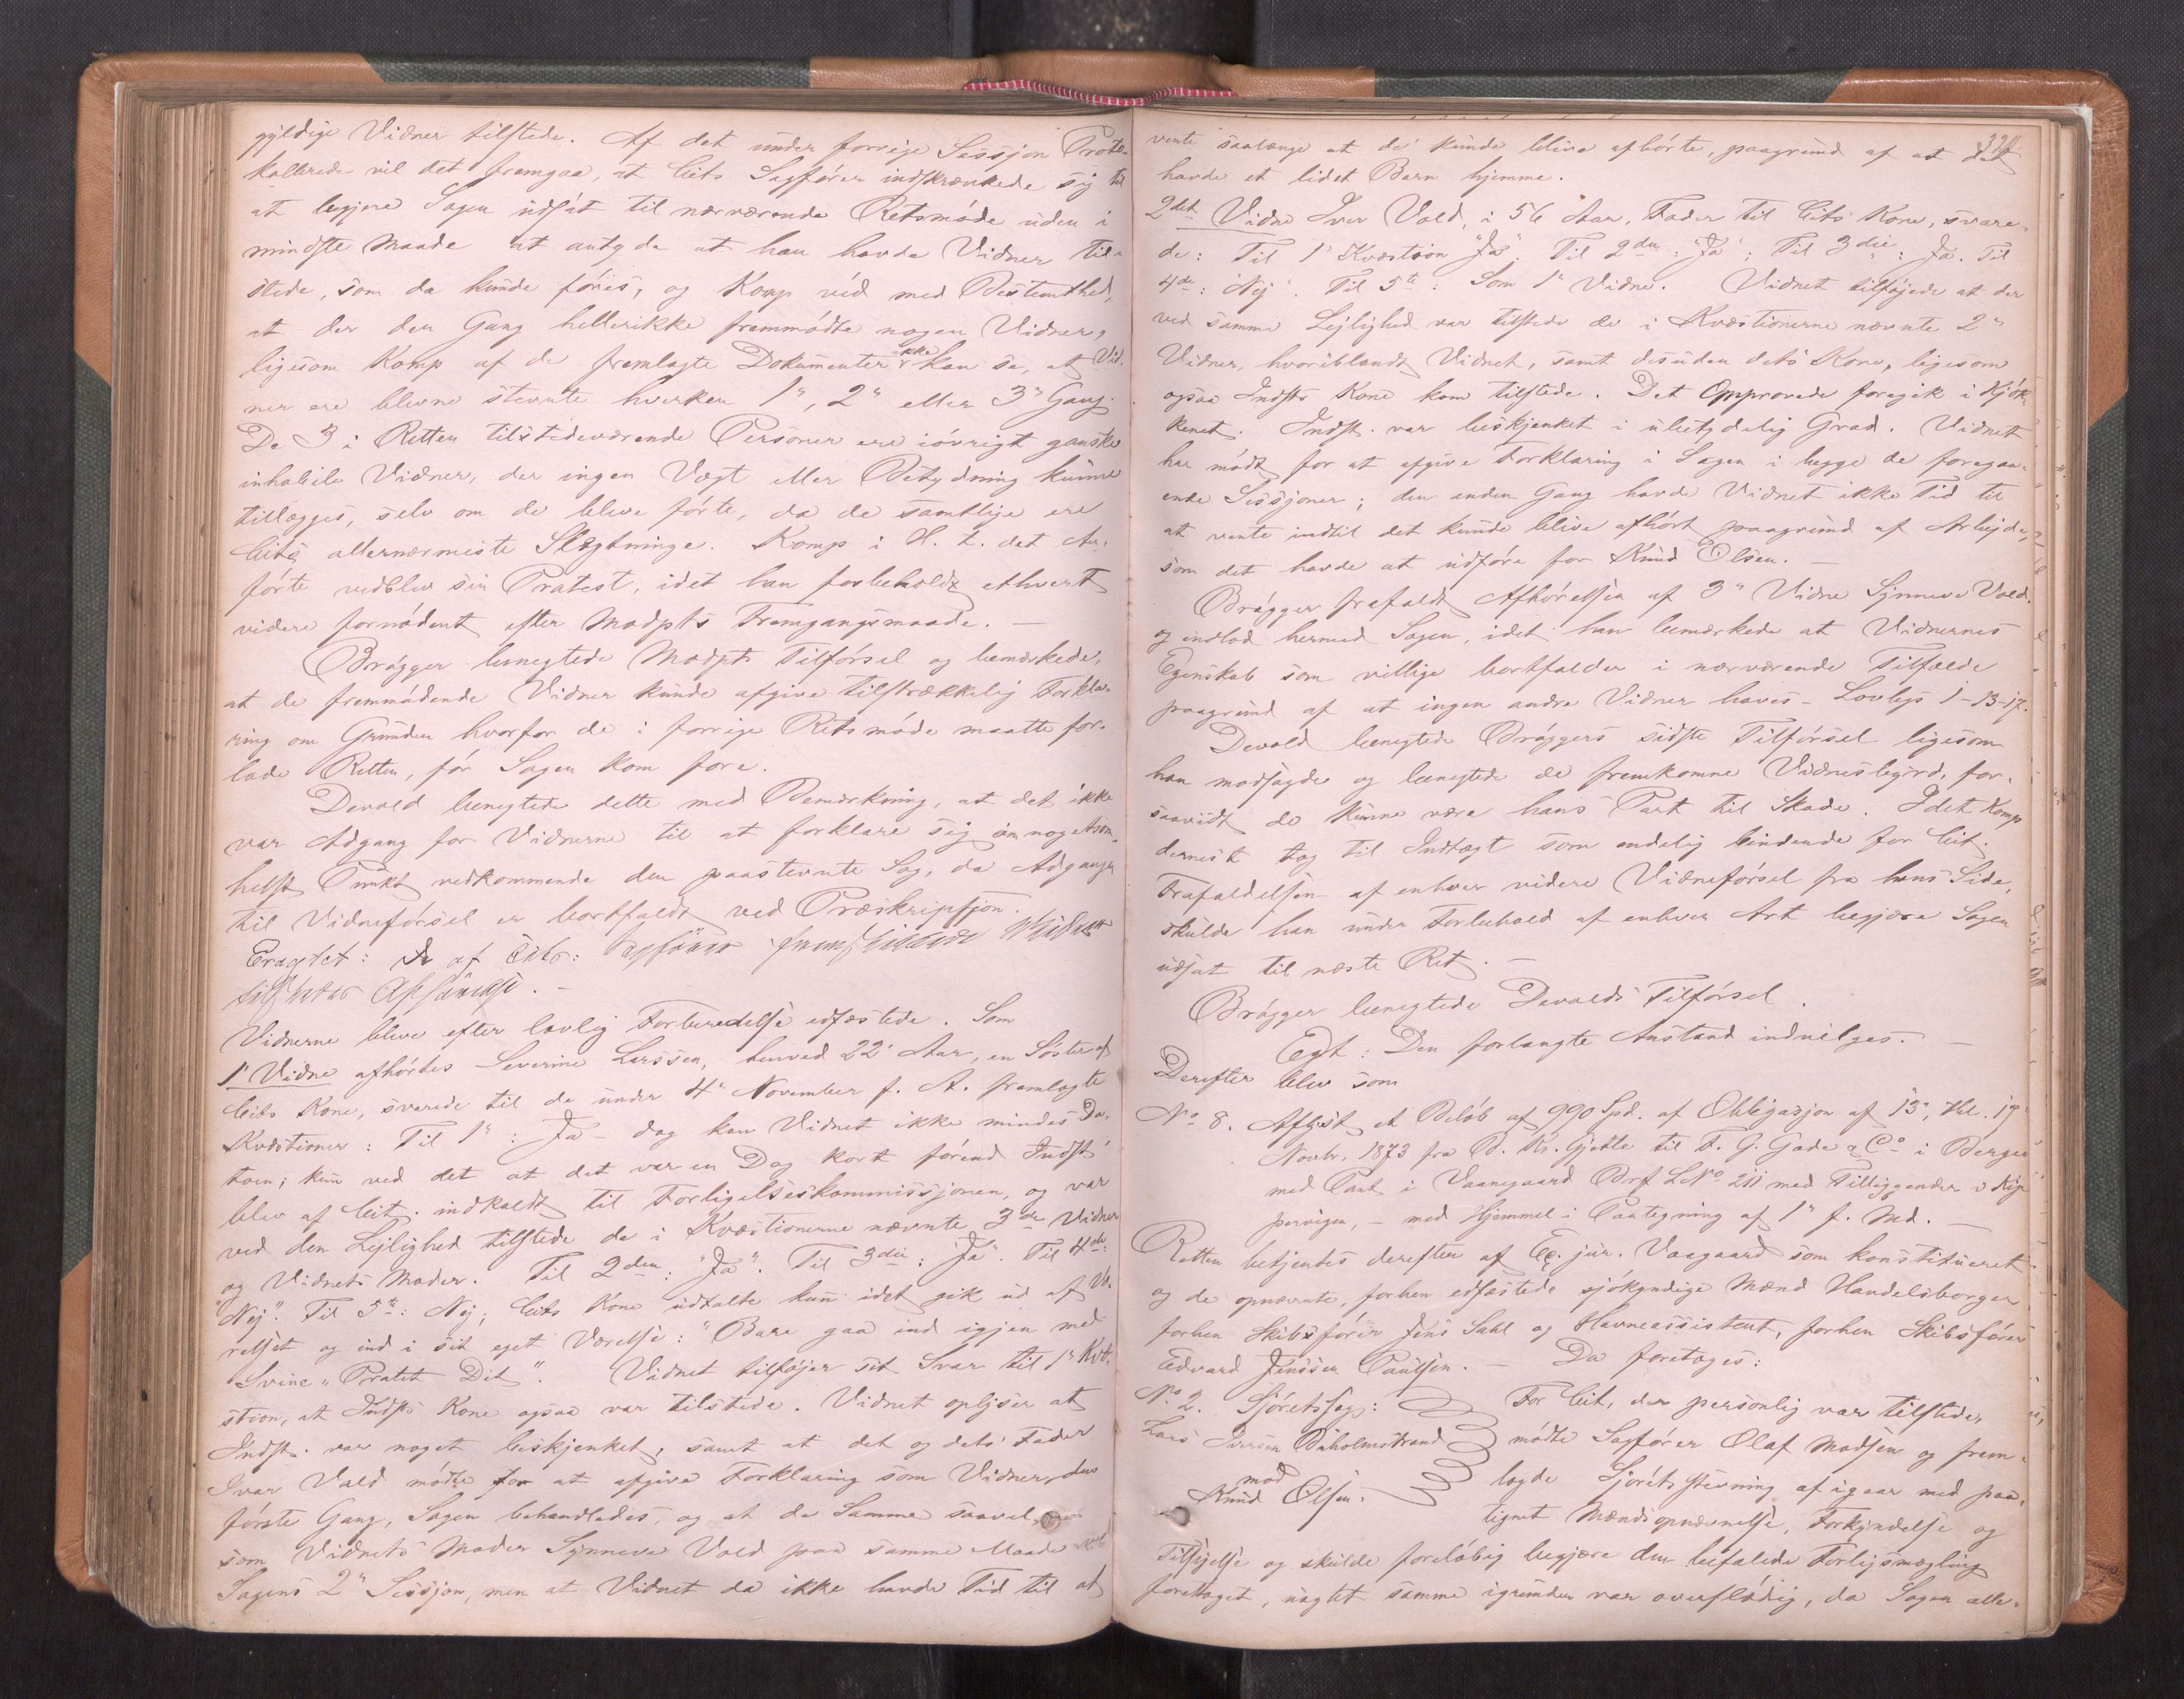 gyldige Vidner tilstede. Af det under forrige Sessjon Proto-
kollerede vil det fremgaa, at Cits Sagfører indskrænkede sig til
at begjere Sagen udsat til nærværende Retsmøde uden i
mindste Maade at antyde at han havde Vidner til-
stede, som da kunde føres, og Komp véd med Bestemthed,
at der den Gang hellerikke fremmødte nogen Vidner,
ligesom Komp af de fremlagte Dokumenter ikke kan se, at Vid-
ner ere blevne stevnte hverken 1", 2" eller 3" Gang.
De 3 i Retten tilstedeværende Personer ere iøvrigt ganske
inhabile Vidner, der ingen Vægt eller Betydning kunne
tillægges, selv om de bleve førte, da de samtlige ere
Cits allernærmeste Slægtninge. Komp i H. t. det An-
førte vedblev sin Protest, idet han forbeholdt ethvert
videre fornødent efter Modpts Fremgangsmaade. —
Brøgger benegtede Modpts Tilførsel og bemærkede,
at de fremmødende Vidner kunde afgive tilstrækkelig Forkla-
ring om Grunden hvorfor de i forrige Retsmøde maatte for-
lade Retten, før Sagen kom fore.
Devold benegtede dette med Bemærkning, at det ikke
var Adgang for Vidnerne til at forklare sig om nogetsom-
helst Punkt vedkommende den paastevnte Sag, da Adgangen
til Vidneførsel er bortfaldt ved Præskripsjon.
Eragtet: De af Cits: Sagfører fremstillede Vidner
tilstedes Afhørelse. —
Vidnerne bleve efter lovlig Forberedelse edfæstede. Som
1" Vidne afhørtes Severine Larssen, henved 22 Aar, en Søster af
Cits Kone, svarede til de under 4" November f. A. fremlagte
Kvæstioner: Til 1": Ja – dog kan Vidnet ikke mindes Da-
toen; kun ved det at det var en Dag kort førend Indst
blev af Cit. indkaldt til Forligelseskommissjonen, og var
ved den Lejlighed tilstede de i Kvæstionerne nævnte 3de Vidner
og Vidnets Moder. Til 2den: "Ja". Til 3die: "Ja". Til 4de:
"Nej". Til 5te: Nej; Cits Kone udtalte kun idet gik ud af Væ-
relset og ind i sit eget Værelse: "Bare gaa ind igjen med
Svine" Pratet Dit". Vidnet tilføjer sit Svar til 1" Kvæ-
stion, at Indsts Kone ogsaa var tilstede. Vidnet oplyser at
Indst. var noget beskjenket, samt at det og dets Fader
Ivar Vold mødte for at afgive Forklaring som Vidner den
første Gang, Sagen behandledes, og at de Samme saavel
som Vidnets Moder Synneve Vold paa samme Maade
Sagens 2" Sessjon, men at Vidnet da ikke havde Tid til at
vente saalænge at de kunde blive afhørte, paagrund af at det
havde et lidet Barn hjemme.
2det Vidne Iver Vold, i 56 Aar, Fader til Cits Kone, svare-
de: Til 1" Kvæstion "Ja". Til 2den: "Ja"; Til 3die: Ja. Til
4de: "Nej". Til 5te: Som 1" Vidne. Vidnet tilføjede at der
ved samme Lejlighed var tilstede de i Kvæstionerne nævnte 2"
Vidner, hvoriblandt Vidnet, samt desuden dets Kone, ligesom
ogsaa Indsts Kone kom tilstede. Det Opprovede foregik i Kjøk-
kenet. Indst. var beskjenket i ubetydelig Grad. Vidnet
har mødt for at afgive Forklaring i Sagen i begge de foregaa-
ende Sessjoner; den anden Gang havde Vidnet ikke Tid til
at vente indtil det kunde blive afhørt paagrund af Arbejde,
som det havde at udføre for Knud Olsen. —
Brøgger frafaldt Afhørelsen af 3" Vidne Synneve Vold.
og indlod hermed Sagen, idet han bemærkede at Vidnernes
Egenskab som villige bortfalder i nærværende Tilfælde
paagrund af at ingen andre Vidner haves – Lovbgs 1-13-17.
Devold benegtede Brøggers sidste Tilførsel ligesom
han modsagde og benegtede de fremkomne Vidnesbyrd, for-
saavidt de kunne være hans Part til Skade. Idet Komp
dernæst tog til Indtægt som endelig bindende for Cit.
Frafaldelsen af enhver videre Vidneførsel fra hans Side,
skulde han under Forbehold af enhver Art begjære Sagen
udsat til næste Ret. —
Brøgger benegtede Devolds Tilførsel.
Egt: Den forlangte Anstand indvilges. —
Derefter blev som
No 8. Aflyst et Beløb af 990 Spd. af Obligasjon af 13", thl. 19
Novbr. 1873 fra B. Kr. Gjette til F. G. Gade & Co i Bergen
med Pant i Vaanegaard Brf LNo 211 med Tilliggender i Kip-
pervigen, – med Hjemmel i Paategning af 1" f. Md. —
Retten betjentes derefter af Ex. jur. Vaagaard som konstitueret
og de opnævnte, forhen edfæstede sjøkyndige Mænd Handelsborger
forhen Skibsfører Jens Dahl og Havneassistent, forhen Skibsfører
Edvard Jenssen Paulsen. — Da foretoges:
No 2. Sjøretssag: For Cit, der personlig var tilstede,
Lars Iversen Baholmstrand mødte Sagfører Olaf Madsen og frem-
mod lagde Sjøretsstevning af igaar med paa-
Knud Olsen. tegnet Mændsopnævnelse, Forkyndelse og
Tilsigelse og skulde foreløbig begjære den befalede Forligsmægling
foretaget, uagtet samme igrunden var overflødig, da Sagen alle-